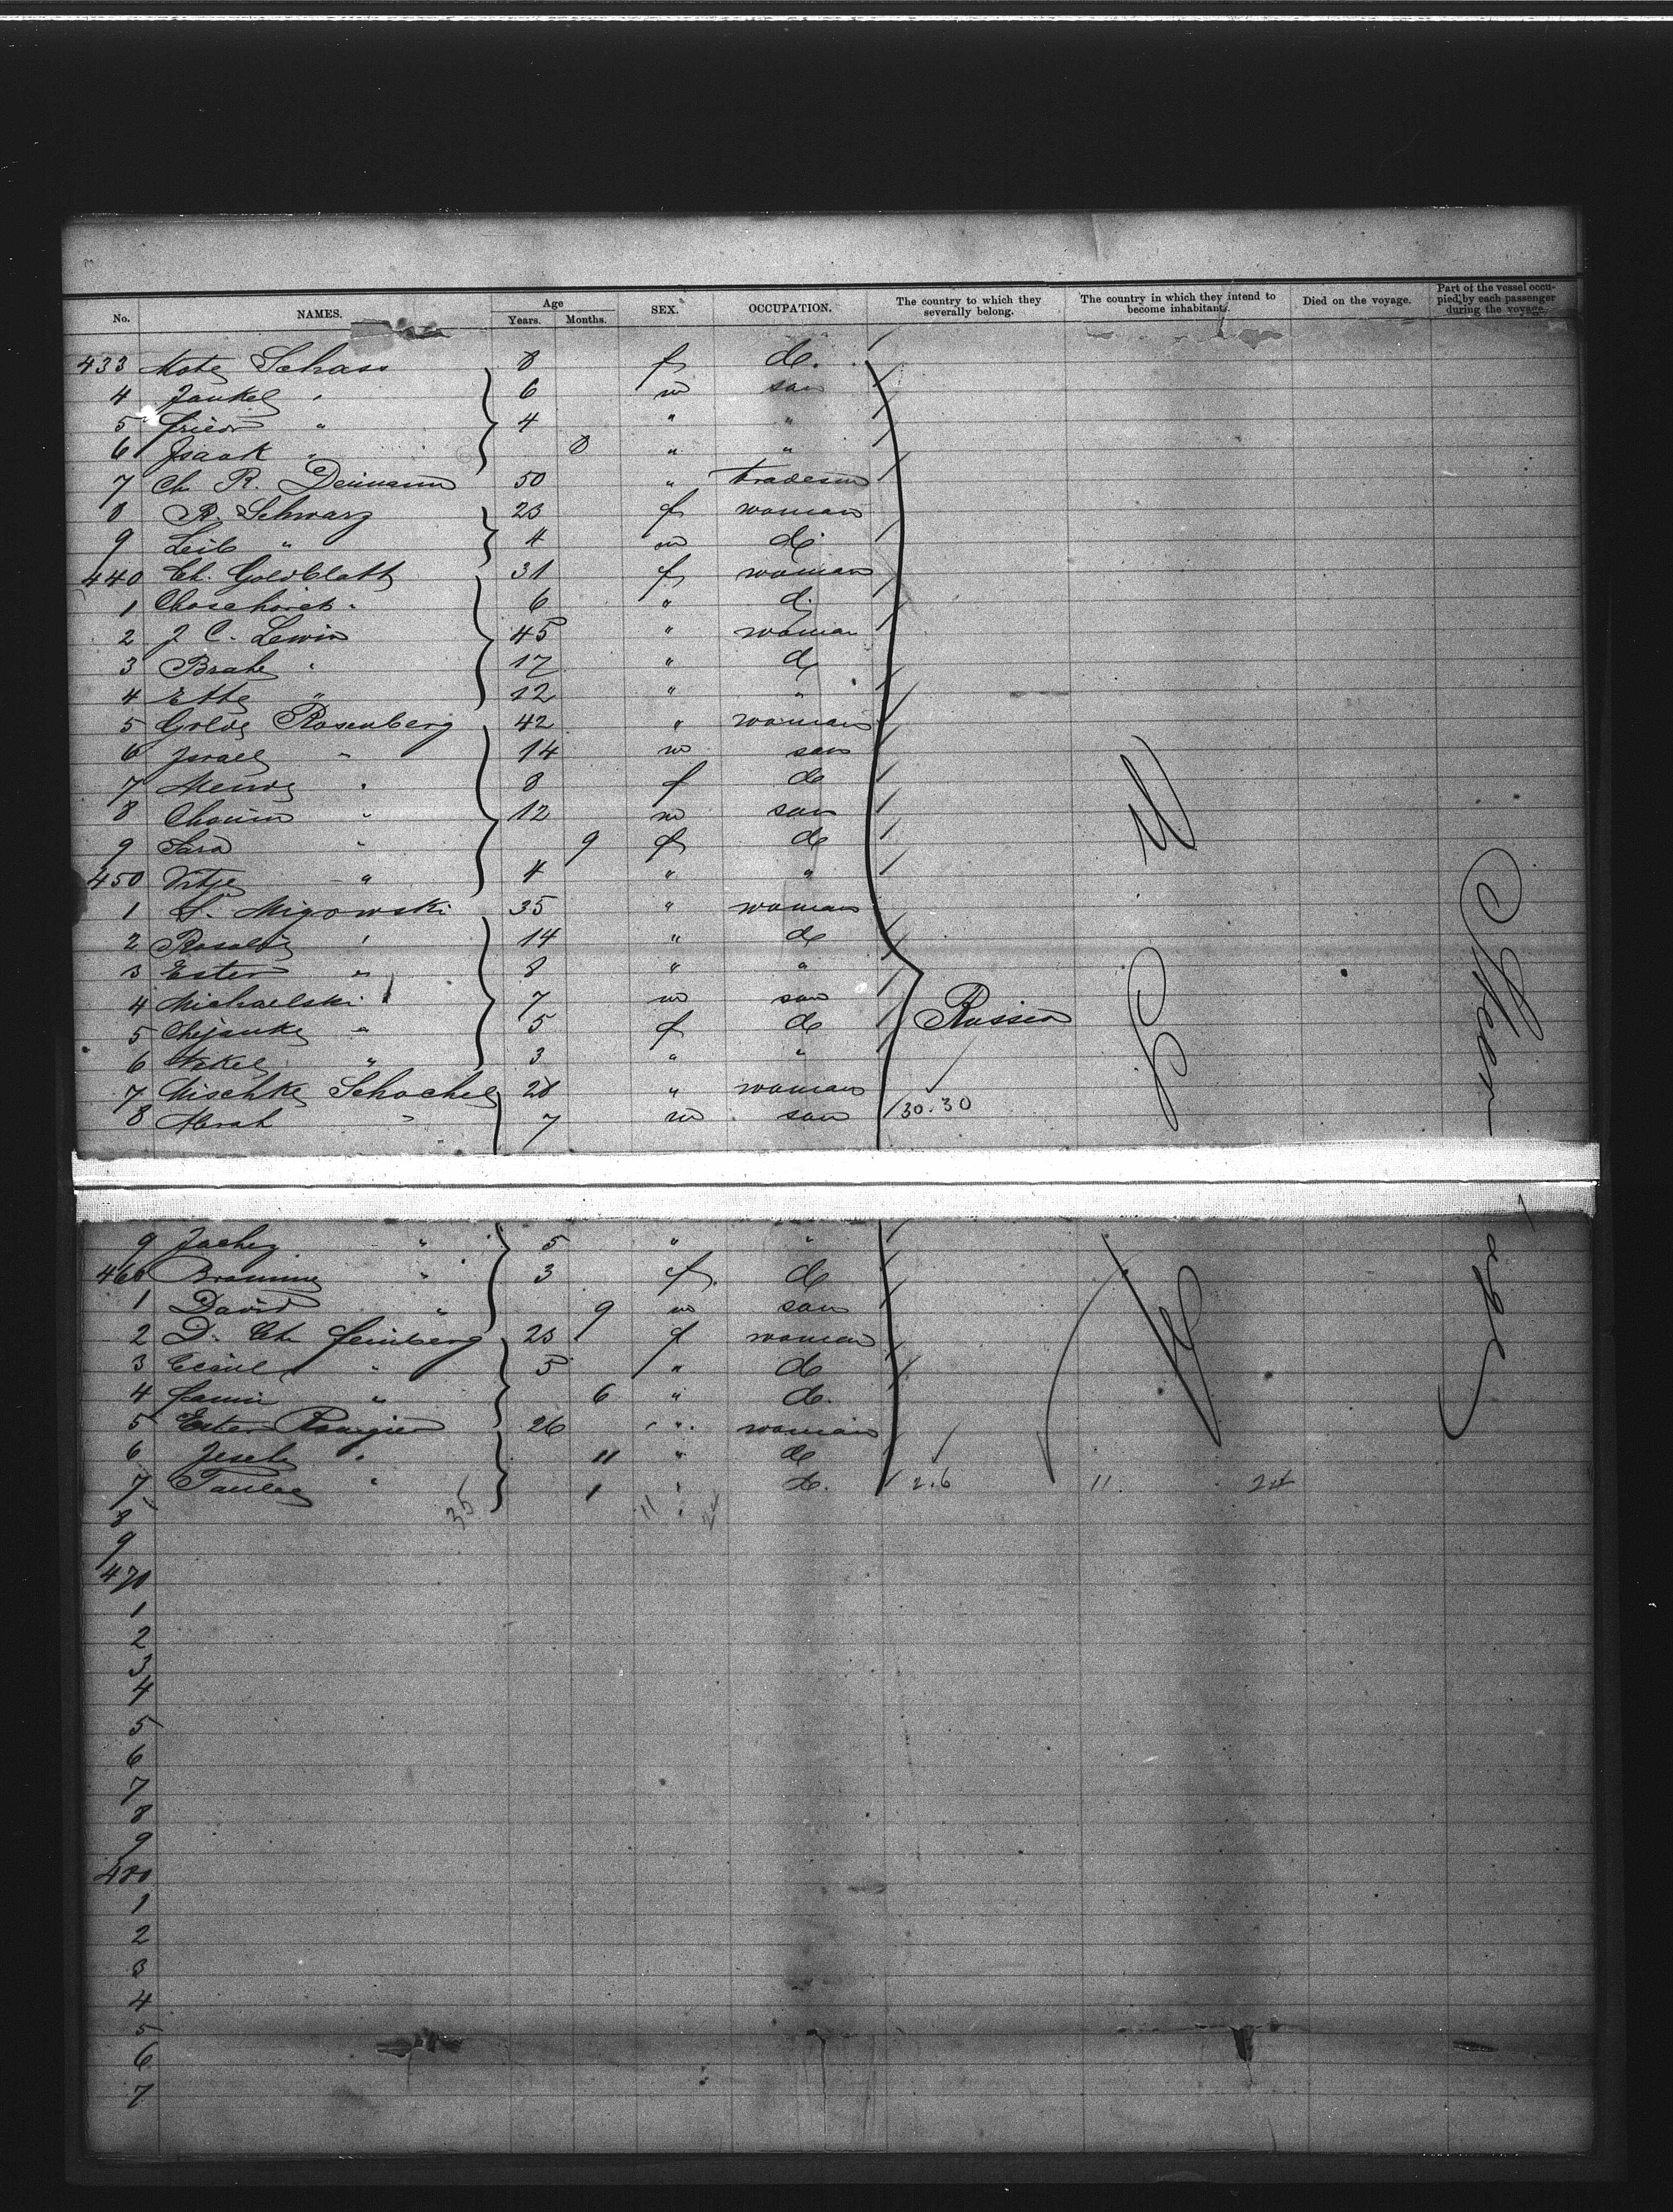 No. NAMES. Age Years. Months. SEX. OCCUPATION. The country to which they severally belong. The country in which they intend to become inhabitants. Died on the voyage. Part of the vessel occupied by each passenger during the voyage.
433 Mote Schass 8 f do.
4 Jankel " 6 m son
5 " 4 " "
6 Isaak " 8 " "
7 Ch. R. Deimann 50 " tradesm
8 R. Schwarz 23 f woman
9 Leib " 4 m do.
440 Ch. Goldblatt 31 f woman
1 " 6 " d.
2 J C. Lewin 45 " woman
3 Brahe " 17 " d
4 Ette " 12 " "
5 Golde Rosenberg 42 " woman
6 Israel " 14 m son
7 " 8 f do
8 Chaim " 12 m son
9 Sara " 9 f do
450 Vitje " 4 " "
1 S. Migowski 35 " woman
2 Rosalie " 14 " do
3 Ester " 8 " "
4 Michaelski " 7 m son
5 Chejanke " 5 f do
6 " 3 " "
Russia
7 Mischke Schochel 28 " woman
8 Abrah " 7 m son 30.30
9 " 5 " "
460 " 3 f. do
1 David " 9 m son
2 D. Ch. Feinberg 23 f woman
3 " 5 " do
4 " 6 " do.
5 Ester 26 " woman
6 " 11 " do
7 " 1 " do. 2.6 11. 24
35 11 24
8
9
470
1
2
3
4
5
6
7
8
9
480
1
2
3
4
5
6
7
U S of A
Steerage